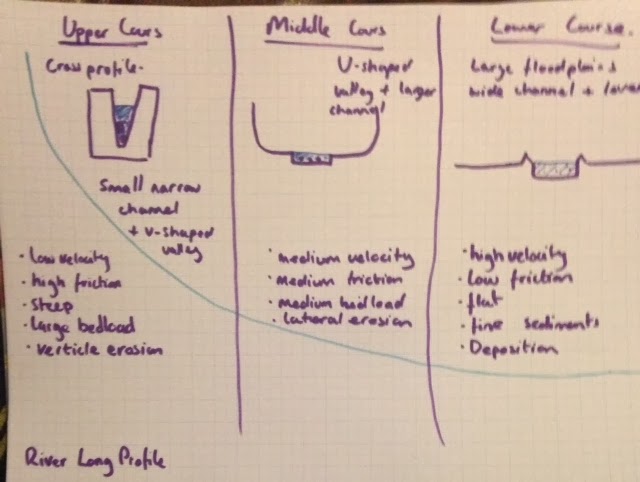 Upper Cours
Cross profile-
Small narrow
channel
+ V-shaped
valley
• low velocity
• high friction
• steep
• large bedload
• verticle erosion
Middle Cours
U-shaped
valley + larger
channel
• medium velocity
• Medium friction
• medium bedload
• lateral erosion
Lower Course.
Large floodplains
wide channel +
• high velocity
• Low friction
• flat
• fine sediments
• Deposition
River Long Profile